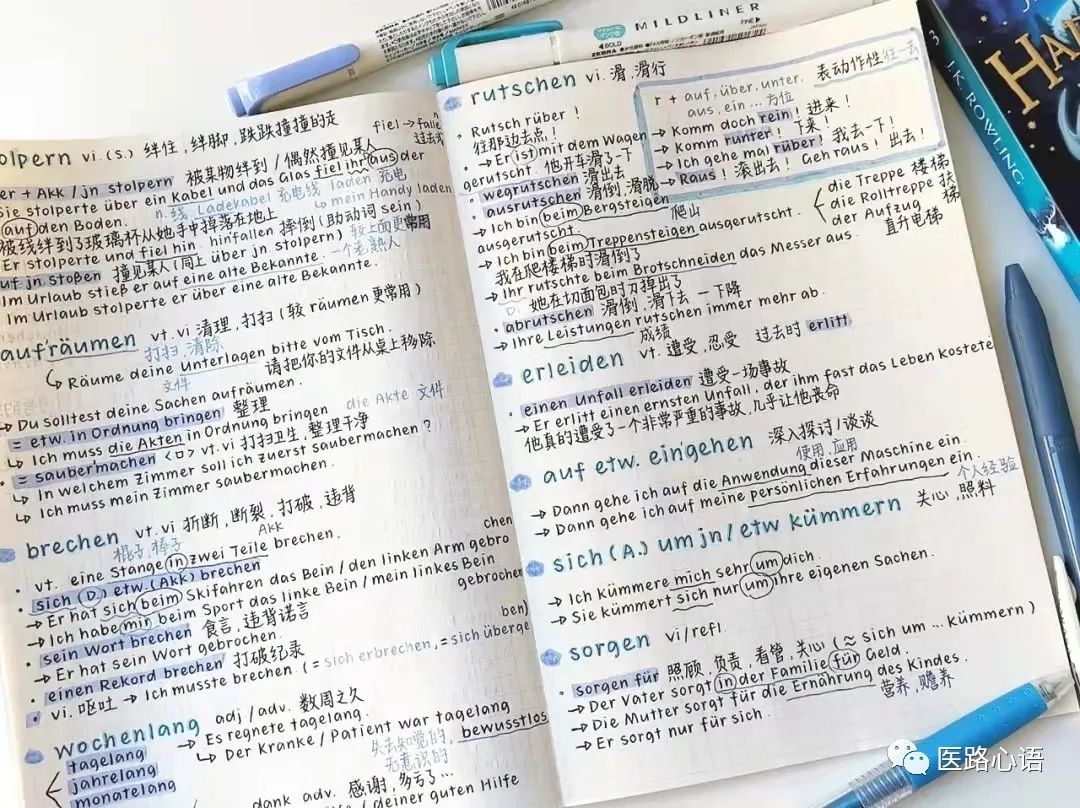 MILDLINER
BOLD
FINE
J.K. ROWLING
HA
3
stolpern vi.(s.) 绊住,绊脚,跌跌撞撞的走
fiel → falle
过去式
über + Akk / jn stolpern 被某物绊到 / 偶然撞见某人
Sie stolperte über ein Kabel und das Glas fiel ihr aus der
n. 线 Ladekabel 充电线 laden 充电
auf den Boden.
↪ mein Handy laden
被线绊到了玻璃杯从她手中掉落在地上
Er stolperte und fiel hin. hinfallen 摔倒(助动词 sein)
auf jn stoßen 撞见某人(同上 über jn stolpern) 较上面更常用
Im Urlaub stieß er auf eine alte Bekannte. 一个老熟人
Im Urlaub stolperte er über eine alte Bekannte.
aufräumen vt.vi 清理,打扫(较 räumen 更常用)
打扫,清除
↪ Räume deine Unterlagen bitte vom Tisch.
文件 请把你的文件从桌上移除
→ Du solltest deine Sachen aufräumen.
= etw. in Ordnung bringen 整理
↪ Ich muss die Akten in Ordnung bringen die Akte 文件
= saubermachen <口> vt.vi 打扫卫生,整理干净
↪ In welchem Zimmer soll ich zuerst saubermachen?
↪ Ich muss mein Zimmer saubermachen.
brechen vt.vi 折断,断裂,打破,违背
棍子,棒子 Akk
vt. eine Stange in zwei Teile brechen.
· sich (D.) etw.(Akk) brechen
→ Er hat sich beim Skifahren das Bein / den linken Arm gebro
chen
→ Ich habe mir beim Sport das linke Bein / mein linkes Bein
gebrochen
· sein Wort brechen 食言,违背诺言
→ Er hat sein Wort gebrochen.
· einen Rekord brechen 打破纪录
· vi. 呕吐 → Ich musste brechen. (= sich erbrechen, = sich überge
ben)
wochenlang adj / adv. 数周之久
tagelang
jahrelang
monatelang
→ Es regnete tagelang.
↪ Der Kranke / Patient war tagelang
失去知觉的,
无意识的 bewusstlos
dank adv. 感谢,多亏了...
/ deiner guten Hilfe
rutschen vi. 滑,滑行
· Rutsch rüber!
往那边去点!
→ Er ist mit dem Wagen
gerutscht. 他开车滑了一下
· wegrutschen 滑出去
· ausrutschen 滑倒,滑脱
→ Ich bin beim Bergsteigen
ausgerutscht. 爬山
→ Ich bin beim Treppensteigen ausgerutscht.
我在爬楼梯时滑倒了
→ Ihr rutschte beim Brotschneiden das Messer aus.
D. 她在切面包时刀掉出了
· abrutschen 滑倒,滑下去 一下降
→ Ihre Leistungen rutschen immer mehr ab.
成绩
r + auf, über, unter, 表动作性往一去
aus, ein ... 方位
→ Komm doch rein! 进来!
→ Komm runter! 下来!
→ Ich gehe mal rüber! 我去一下!
→ Raus! 滚出去! Geh raus! 出去!
die Treppe 楼梯
die Rolltreppe 扶梯
der Aufzug
直升电梯
erleiden vt. 遭受,忍受 过去时 erlitt
· einen Unfall erleiden 遭受一场事故
→ Er erlitt einen ernsten Unfall, der ihm fast das Leben kostete
他真的遭受了一个非常严重的事故,几乎让他丧命
auf etw. eingehen 深入探讨 / 谈谈
使用,应用
→ Dann gehe ich auf die Anwendung dieser Maschine ein.
→ Dann gehe ich auf meine persönlichen Erfahrungen ein.
个人经验
sich (A.) um jn / etw kümmern 关心,照料
→ Ich kümmere mich sehr um dich.
→ Sie kümmert sich nur um ihre eigenen Sachen.
sorgen vi/refl.
· sorgen für 照顾,负责,看管,关心(≈ sich um ... kümmern)
→ Der Vater sorgt in der Familie für Geld.
→ Die Mutter sorgt für die Ernährung des Kindes.
营养,赡养
→ Er sorgt nur für sich.
医路心语